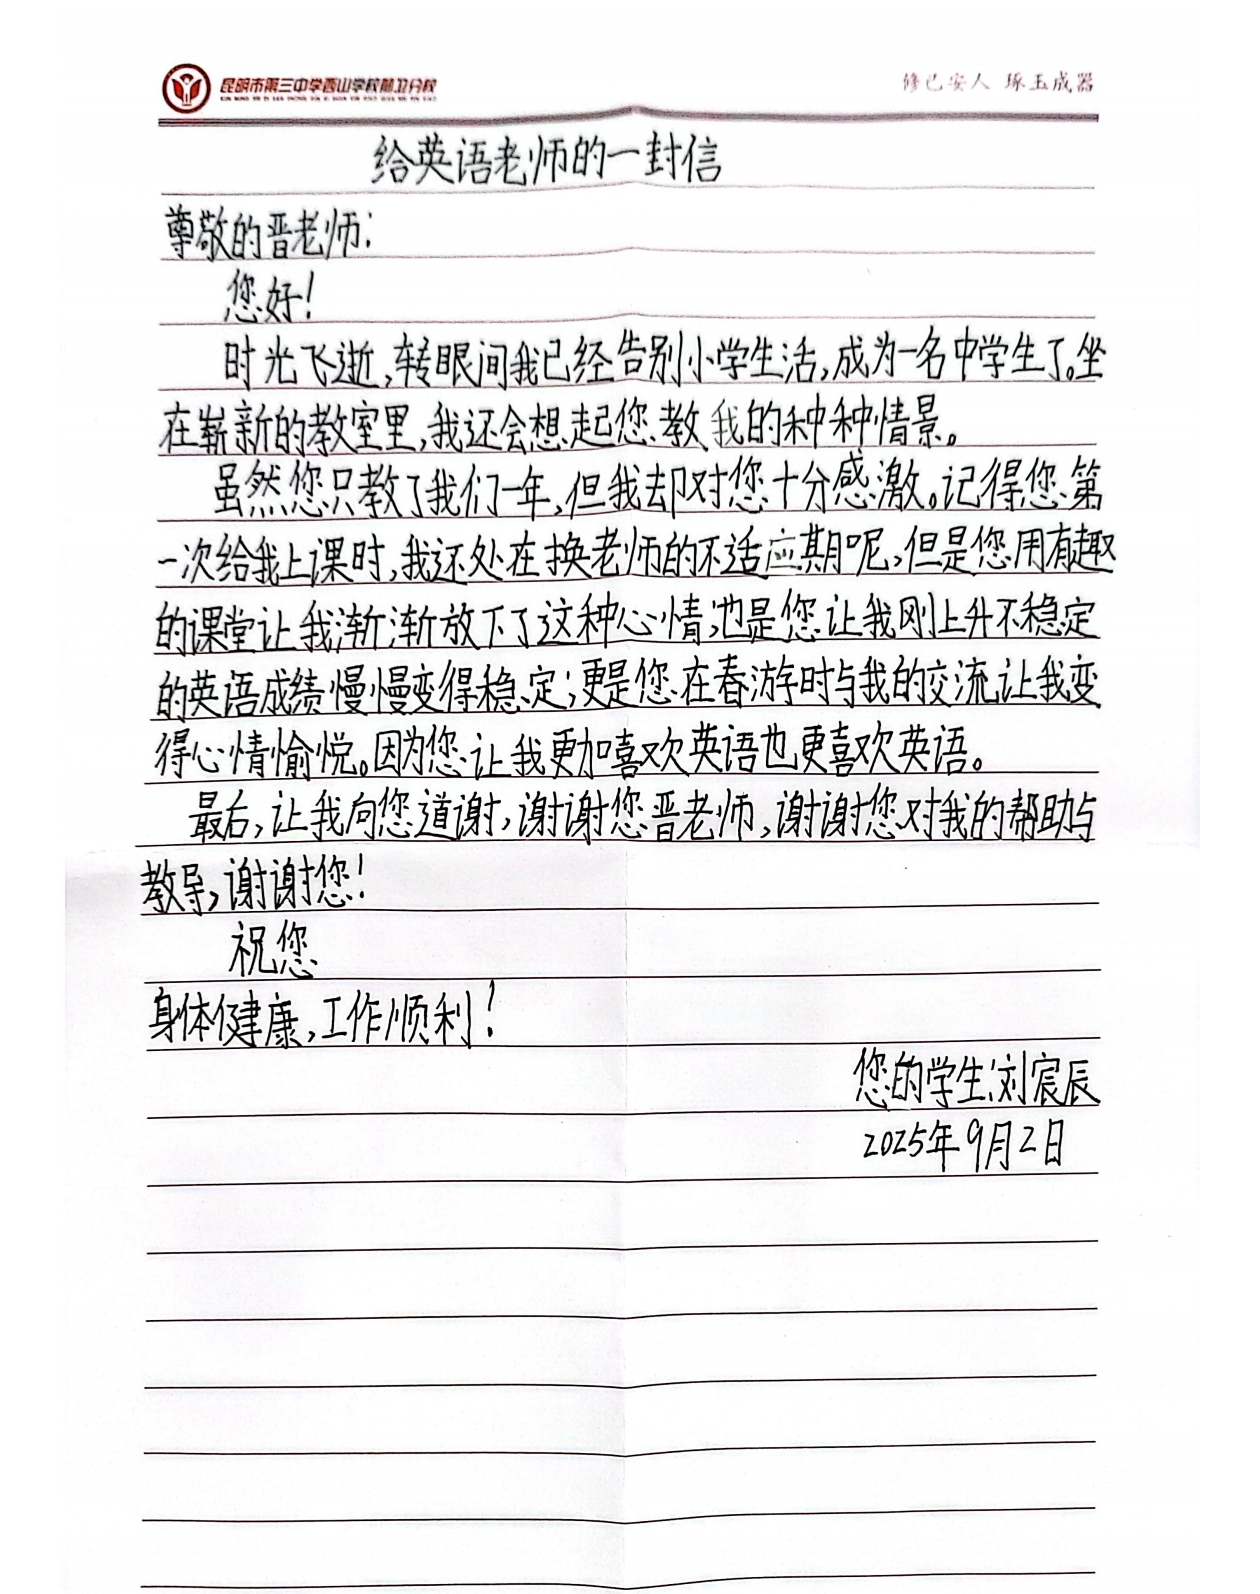 昆明市第三中学西山学校前卫分校
修己安人 琢玉成器
给英语老师的一封信
尊敬的晋老师：
您好！
时光飞逝，转眼间我已经告别小学生活，成为一名中学生了。坐
在崭新的教室里，我还会想起您教我的种种情景。
虽然您只教了我们一年，但我却对您十分感激。记得您第
一次给我上课时，我还处在换老师的不适应期呢，但是您用有趣
的课堂让我渐渐放下了这种心情；也是您让我刚上升不稳定
的英语成绩慢慢变得稳定；更是您在春游时与我的交流让我变
得心情愉悦。因为您让我更加喜欢英语也更喜欢英语。
最后，让我向您道谢，谢谢您晋老师，谢谢您对我的帮助与
教导，谢谢您！
祝您
身体健康，工作顺利！
您的学生：刘宸辰
2025年9月2日